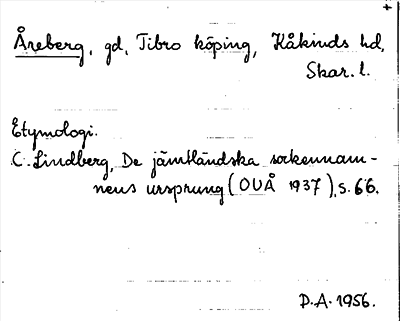 Åreberg, gd, Tibro köping, Kåkinds hd,
Skar. l.
Etymologi.
C. Lindberg, De jämtländska sockennam-
nens ursprung (OUÅ 1937), s. 66.
D.A. 1956.